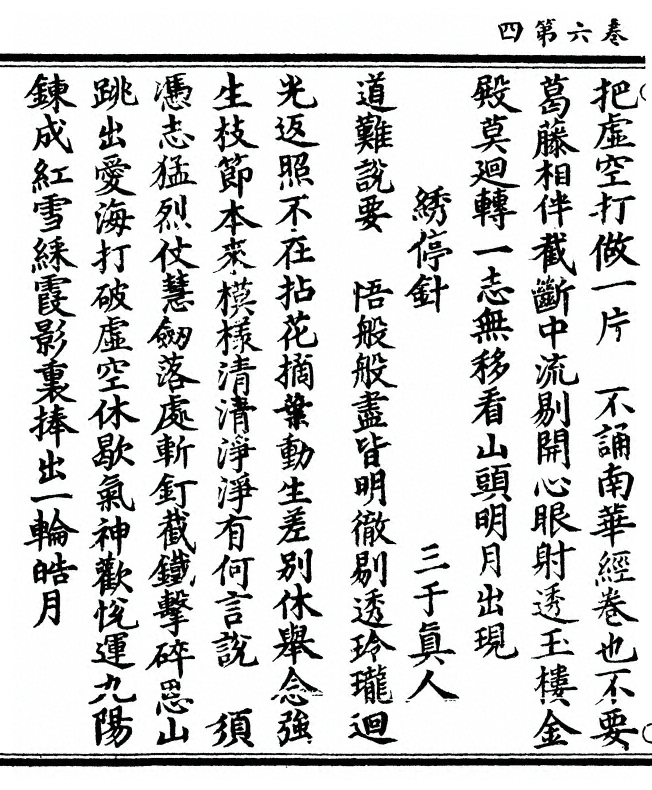 卷六第四
把虛空打做一片　不誦南華經卷也不要
葛藤相伴截斷中流剔開心眼射透玉樓金
殿莫迴轉一志無移看山頭明月出現
繡停針　三于真人
道難說要　悟般般盡皆明徹剔透玲瓏迴
光返照不在拈花摘葉動生差別休舉念強
生枝節本來模樣清清淨淨有何言說　須
憑志猛烈仗慧劒落處斬釘截鐵擊碎恩山
跳出愛海打破虛空休歇氣神歡悅運九陽
鍊成紅雪綵霞影裏捧出一輪皓月